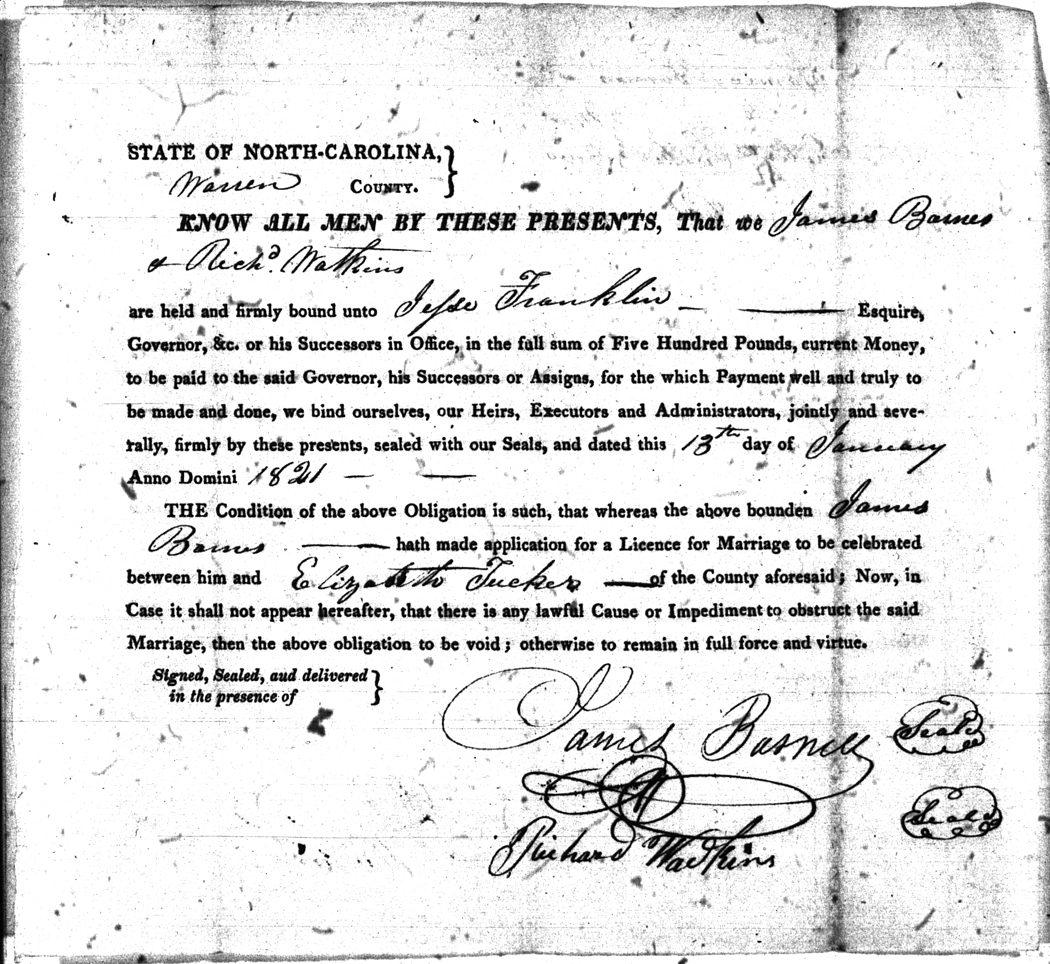 STATE OF NORTH-CAROLINA,
Warren COUNTY.
KNOW ALL MEN BY THESE PRESENTS, That we James Barnes
& Richd. Watkins
are held and firmly bound unto Jesse Franklin — — Esquire,
Governor, &c. or his Successors in Office, in the full sum of Five Hundred Pounds, current Money,
to be paid to the said Governor, his Successors or Assigns, for the which Payment well and truly to
be made and done, we bind ourselves, our Heirs, Executors and Administrators, jointly and seve-
rally, firmly by these presents, sealed with our Seals, and dated this 13th day of January
Anno Domini 1821 — —
THE Condition of the above Obligation is such, that whereas the above bounden James
Barnes — hath made application for a Licence for Marriage to be celebrated
between him and Elizabeth Tucker — of the County aforesaid; Now, in
Case it shall not appear hereafter, that there is any lawful Cause or Impediment to obstruct the said
Marriage, then the above obligation to be void; otherwise to remain in full force and virtue.
Signed, Sealed, aud delivered
in the presence of
James Seal
Richard Wadkins Seal